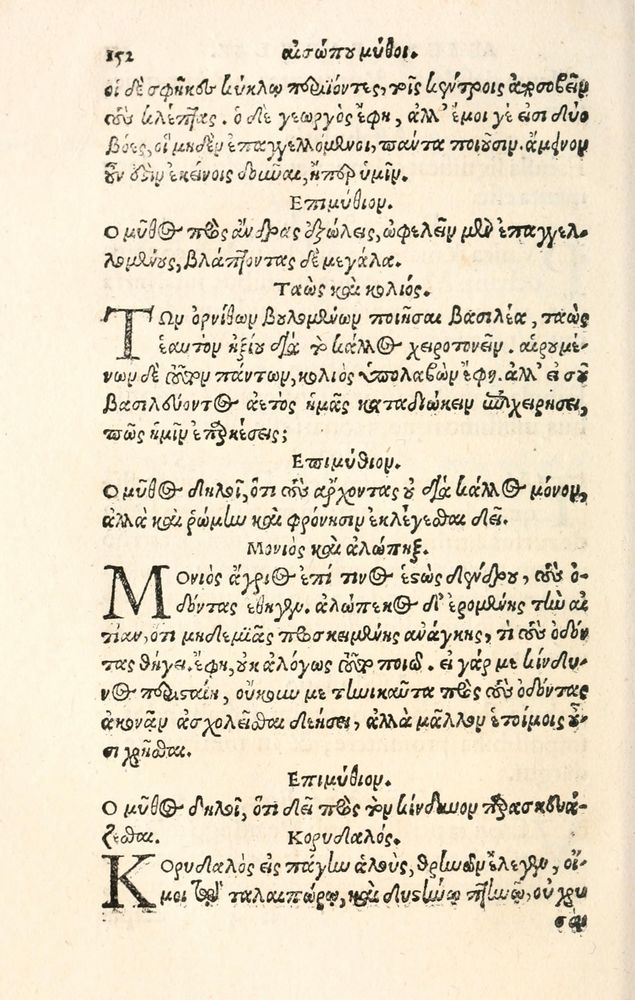 152 αἰσώπου μῦθοι.
οἱ δὲ σφῆκες κύκλῳ περιϊόντες, τοῖς κέντροις ἀποσοβεῖν
τοὺς κλέπτας. ὁ δὲ γεωργὸς ἔφη, ἀλλ' ἔμοι γέ εἰσι δύο
βόες, οἳ μηδὲν ἐπαγγελλόμενοι, πάντα ποιοῦσιν. ἄμεινον
οὖν ἐστιν ἐκείνοις δοῦναι, ἤπερ ὑμῖν.
Επιμύθιον.
Ο μῦθος πρὸς ἄνδρας ἐξώλεις, ὠφελεῖν μὲν ἐπαγγελ-
λομένους, βλάπτοντας δὲ μεγάλα.
Ταὼς καὶ κολιός.
Τῶν ὀρνίθων βουλομένων ποιῆσαι βασιλέα, ταὼς
ἑαυτὸν ἠξίου διὰ τὸ κάλλος χειροτονεῖν. αἱρουμέ-
νων δὲ τοῦτον πάντων, κολιὸς ὑπολαβὼν ἔφη. ἀλλ' εἰ σοῦ
βασιλεύοντος ἀετὸς ἡμᾶς καταδιώκειν ἐπιχειρήσει,
πῶς ἡμῖν ἐπαρκέσεις;
Επιμύθιον.
Ο μῦθος δηλοῖ, ὅτι τοὺς ἄρχοντας οὐ διὰ κάλλος μόνον,
ἀλλὰ καὶ ῥώμην καὶ φρόνησιν ἐκλέγεσθαι δεῖ.
Μονιὸς καὶ ἀλώπηξ.
Μονιὸς ἄγριος ἐπί τινος ἑστὼς δένδρου, τοὺς ὀ-
δόντας ἔθηγεν. ἀλώπεκος δ' ἐρομένης τὴν αἰ
τίαν, ὅτι μηδεμιᾶς προσκειμένης ἀνάγκης, τί τοὺς ὀδόν
τας θήγει. ἔφη, οὐκ ἀλόγως τοῦτο ποιῶ. εἰ γάρ με κίνδυ-
νος περισταίη, οὔκουν με τηνικαῦτα πρὸς τοὺς ὀδόντας
ἀκονᾶν ἀσχολεῖσθαι δεήσει, ἀλλὰ μᾶλλον ἑτοίμοις οὖ-
σι χρῆσθαι.
Επιμύθιον.
Ο μῦθος δηλοῖ, ὅτι δεῖ πρὸς τὸν κίνδυνον παρασκευά-
ζεσθαι. Κορυδαλός.
Κορυδαλὸς εἰς πάγην ἁλοὺς, θρηνῶν ἔλεγεν, οἴ-
μοι τῷ ταλαιπώρῳ, καὶ δυστήνῳ πτηνῷ, οὐ χρυ
σὸν